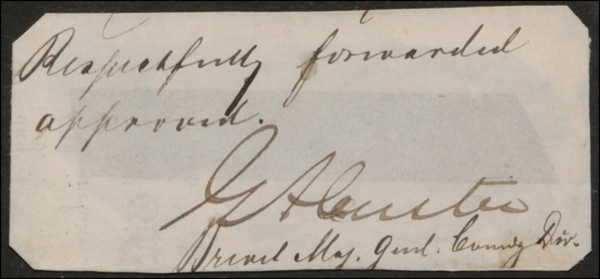 Respectfully forwarded
approved.
G A Custer
Brevet Maj. Genl. Comdg Div.